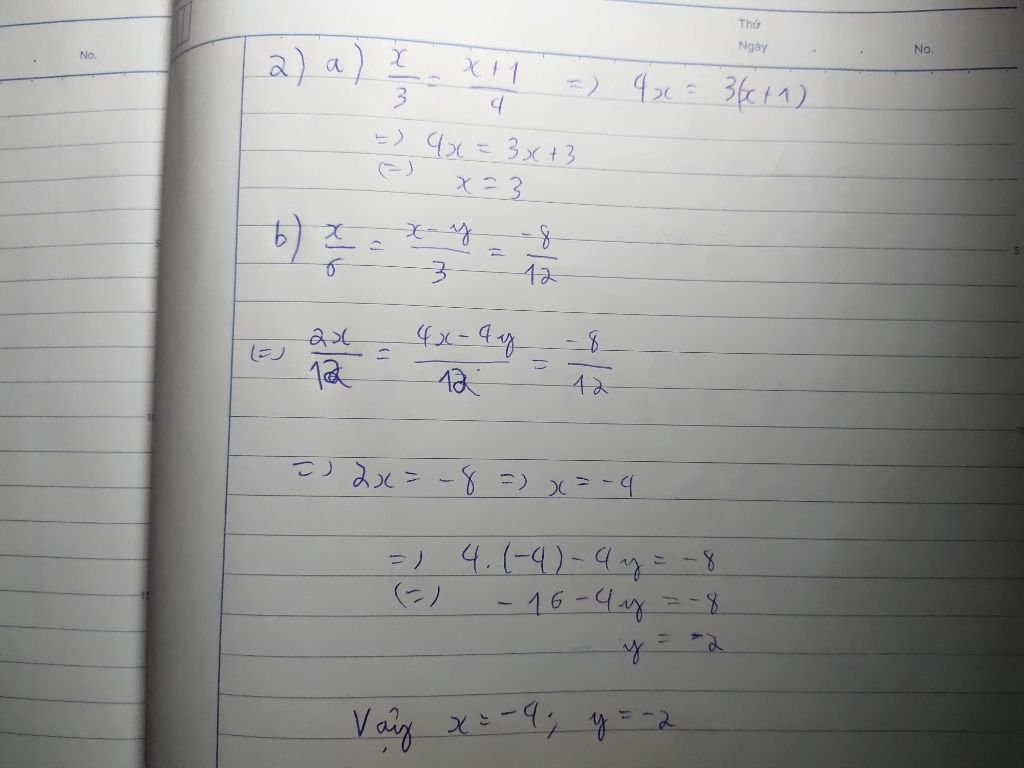 Thứ
No. Ngày No.
2) a) x/3 = x+1/4 => 4x = 3(x+1)
=> 4x = 3x+3
(=) x = 3
b) x/6 = x-y/3 = -8/12
(=) 2x/12 = 4x-4y/12 = -8/12
=> 2x = -8 => x = -4
=) 4.(-4)-4y = -8
(=) -16-4y = -8
y = -2
Vậy x = -4; y = -2